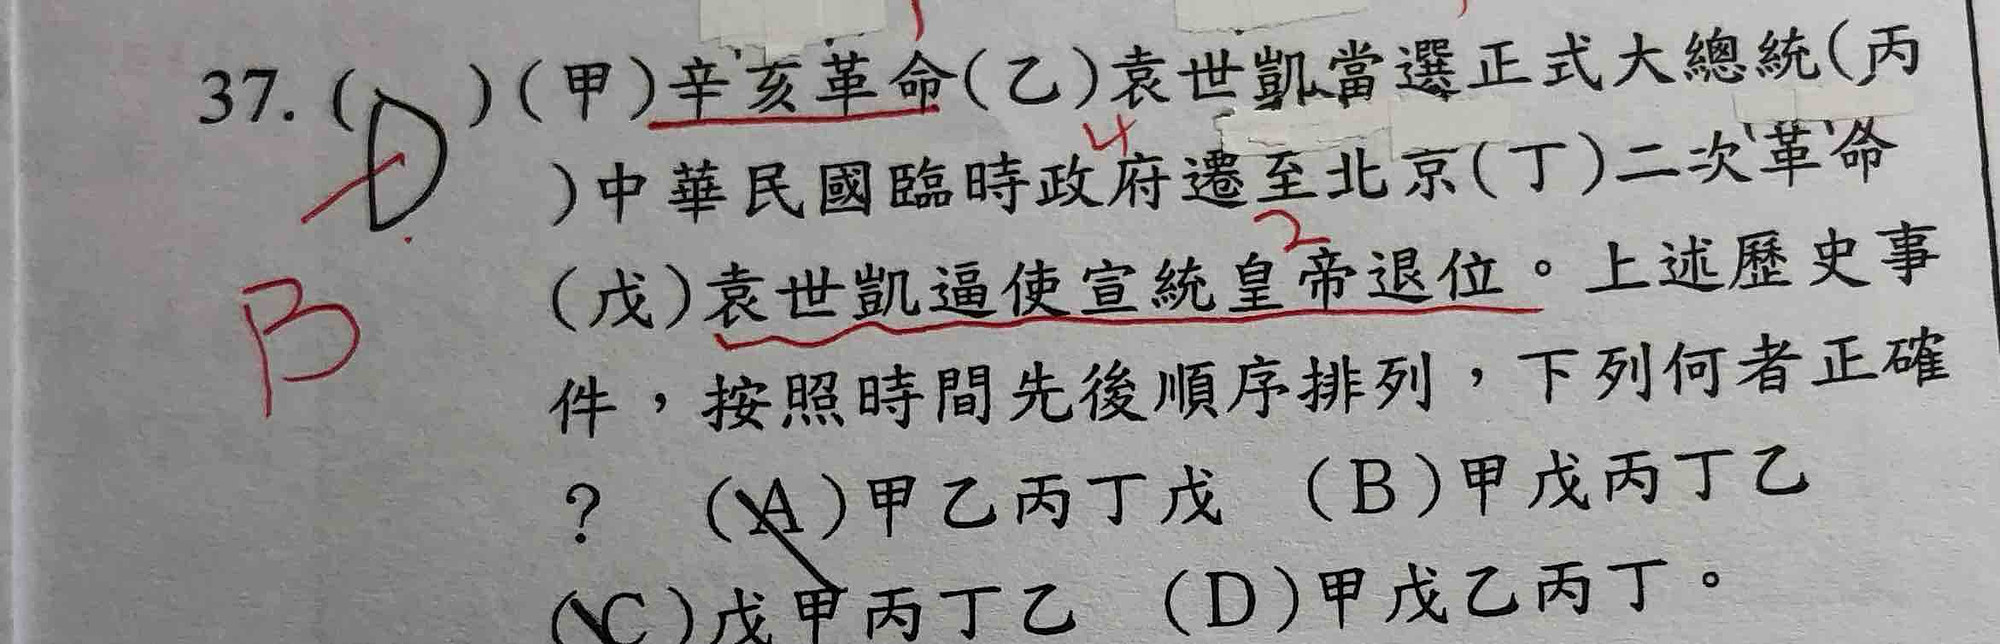 37. ( D )(甲)辛亥革命(乙)袁世凱當選正式大總統(丙
4
)中華民國臨時政府遷至北京(丁)二次革命
2
(戊)袁世凱逼使宣統皇帝退位。上述歷史事
B
件，按照時間先後順序排列，下列何者正確
? (A)甲乙丙丁戊 (B)甲戊丙丁乙
(C)戊甲丙丁乙 (D)甲戊乙丙丁。